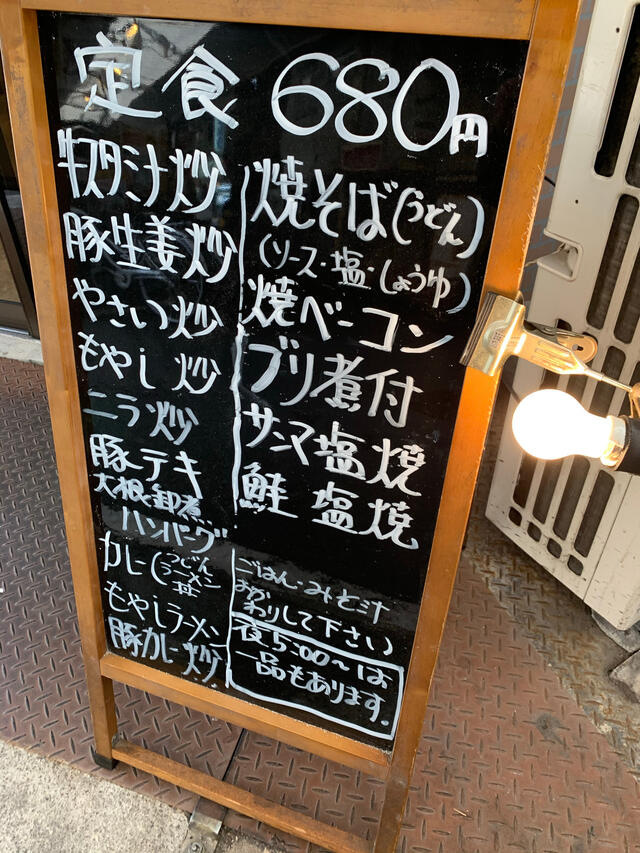 定食 680円
牛スタミナ炒
豚生姜炒
やさい炒
もやし炒
ニラ炒
豚テキ
大根卸煮
ハンバーグ
カレー(うどん
ラーメン
丼
もやしラーメン
豚カレー炒
焼そば(うどん)
(ソース・塩・しょうゆ)
焼ベーコン
ブリ煮付
サンマ塩焼
鮭塩焼
ごはん・みそ汁
おか
わりして下さい
夜5:00〜は
一品もあります.